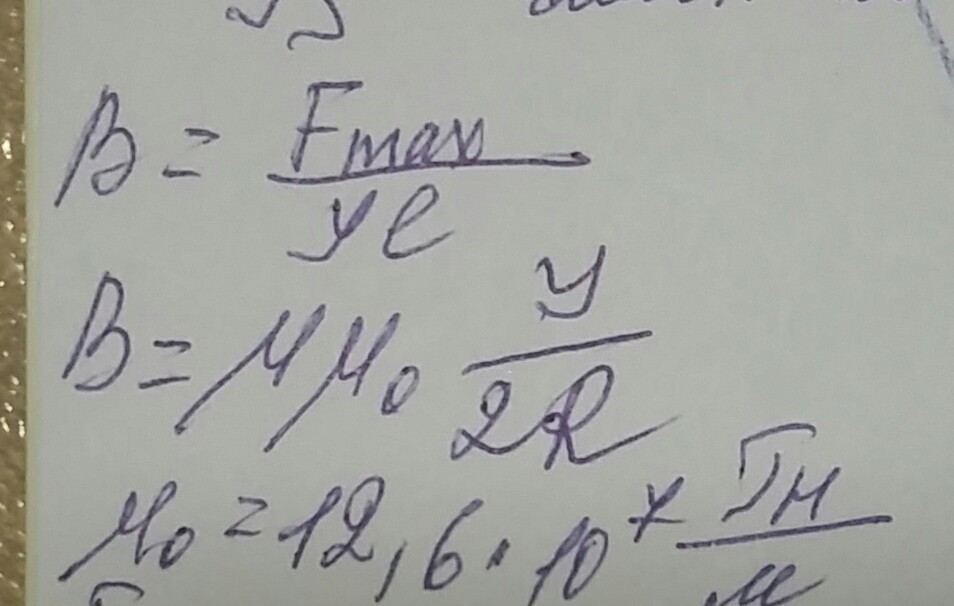 B = Fmax / yl
B = μμ₀ y / 2R
μ₀ = 12,6 · 10⁷ Гн / м